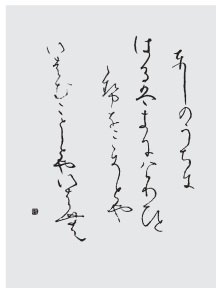 としのうちに
はるはきにけりひと
とせをこそとや
いはむことしとやいはむ